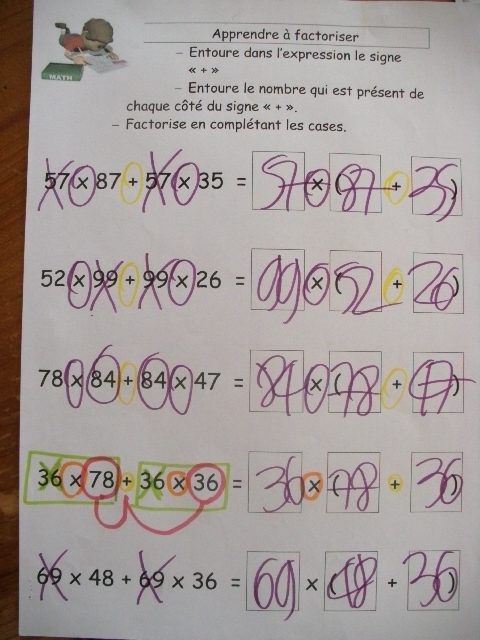 Apprendre à factoriser
– Entoure dans l'expression le signe
« + »
– Entoure le nombre qui est présent de
chaque côté du signe « + ».
– Factorise en complétant les cases.
MATH
57 x 87 + 57 x 35 = 57 x ( 87 + 35 )
52 x 99 + 99 x 26 = 99 x ( 52 + 26 )
78 x 84 + 84 x 47 = 84 x ( 78 + 47 )
36 x 78 + 36 x 36 = 36 x ( 78 + 36 )
69 x 48 + 69 x 36 = 69 x ( 48 + 36 )